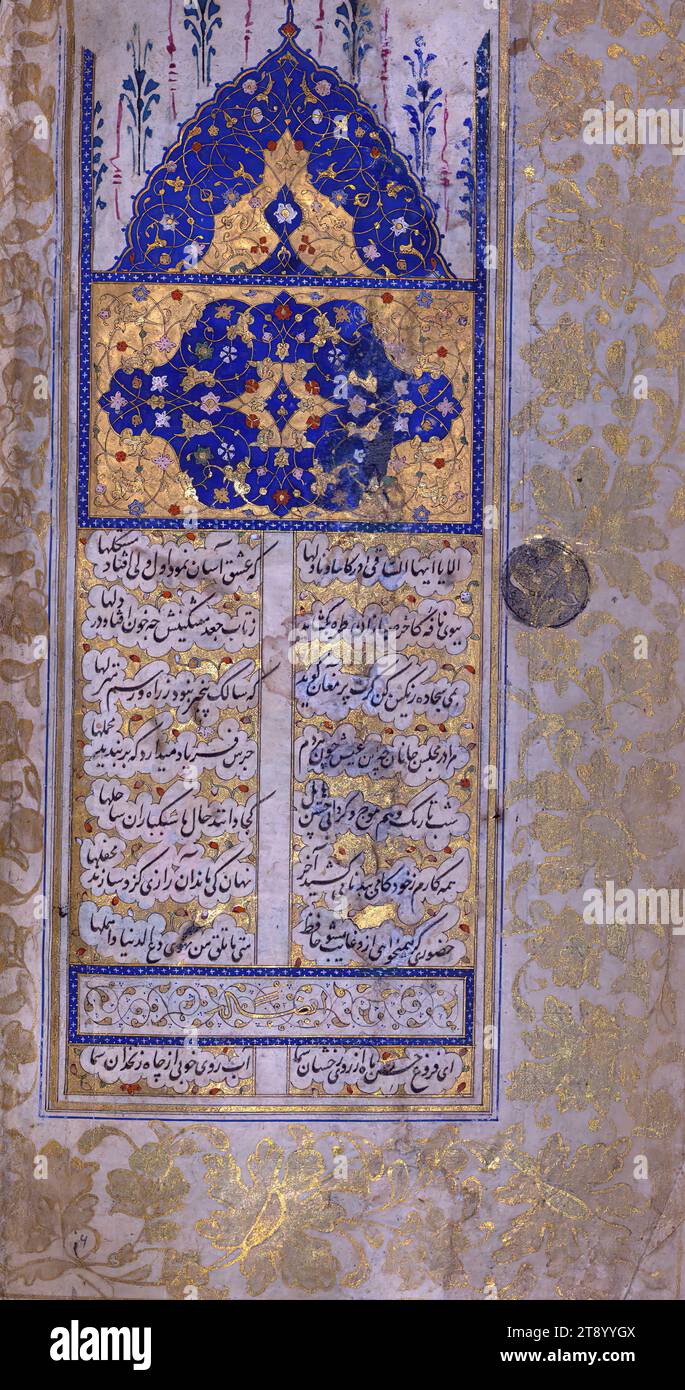 الا یا ایها الساقی ادر کاسا و ناولها که عشق آسان نمود اول ولی افتاد مشکلها
ببوی نافه کاخر صبا زان طره بگشاید ز تاب جعد مشکینش چه خون افتاد در دلها
بمی سجاده رنگین کن گرت پیر مغان گوید که سالک بیخبر نبود ز راه و رسم منزلها
مرا در مجلس جانان چه امن عیش چون هردم جرس فریاد میدارد که بربندید محملها
شب تاریک و بیم موج و گردابی چنین هایل کجا دانند حال ما سبکباران ساحلها
همه کارم ز خود کامی ببدنامی کشید آخر نهان کی ماند آن رازی کزو سازند محفلها
حضوری گر همیخواهی ازو غایب مشو حافظ متی ما تلق من تهوی دع الدنیا و اهملها
ای فروغ حسن ماه از روی رخشان شما آب روی خوبی از چاه زنخدان شما
alamy
Image ID: 2T8YYGX
www.alamy.com